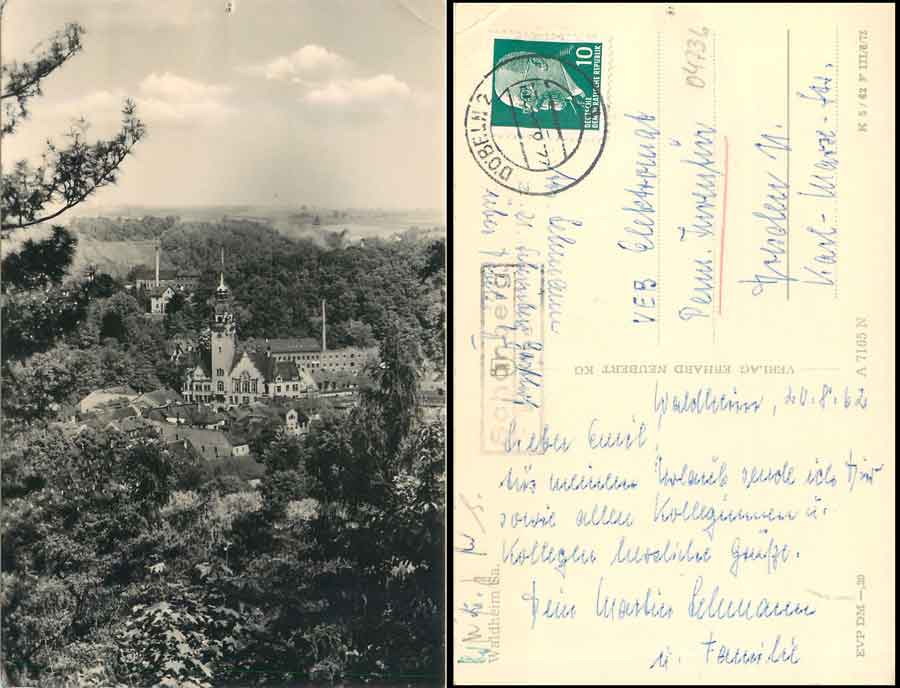 10
DEUTSCHE
DEMOKRATISCHE REPUBLIK
DÖBELN 2
04736
VEB Elektromat
Dresden N.
Karl-Marx-Str.
Lehmann
über Döbeln 2
Schönberg
Waldheim, 20.8.62
Lieber Emil,
Aus meinem Urlaub sende ich Dir
sowie allen Kolleginnen u.
Kollegen herzliche Grüße.
Dein Martin Lehmann
u. Familie
Waldheim Sn.
VERLAG ERHARD NEUBERT KG
A 7165 N
K 5/62 F III/8/73
EVP DM —,20